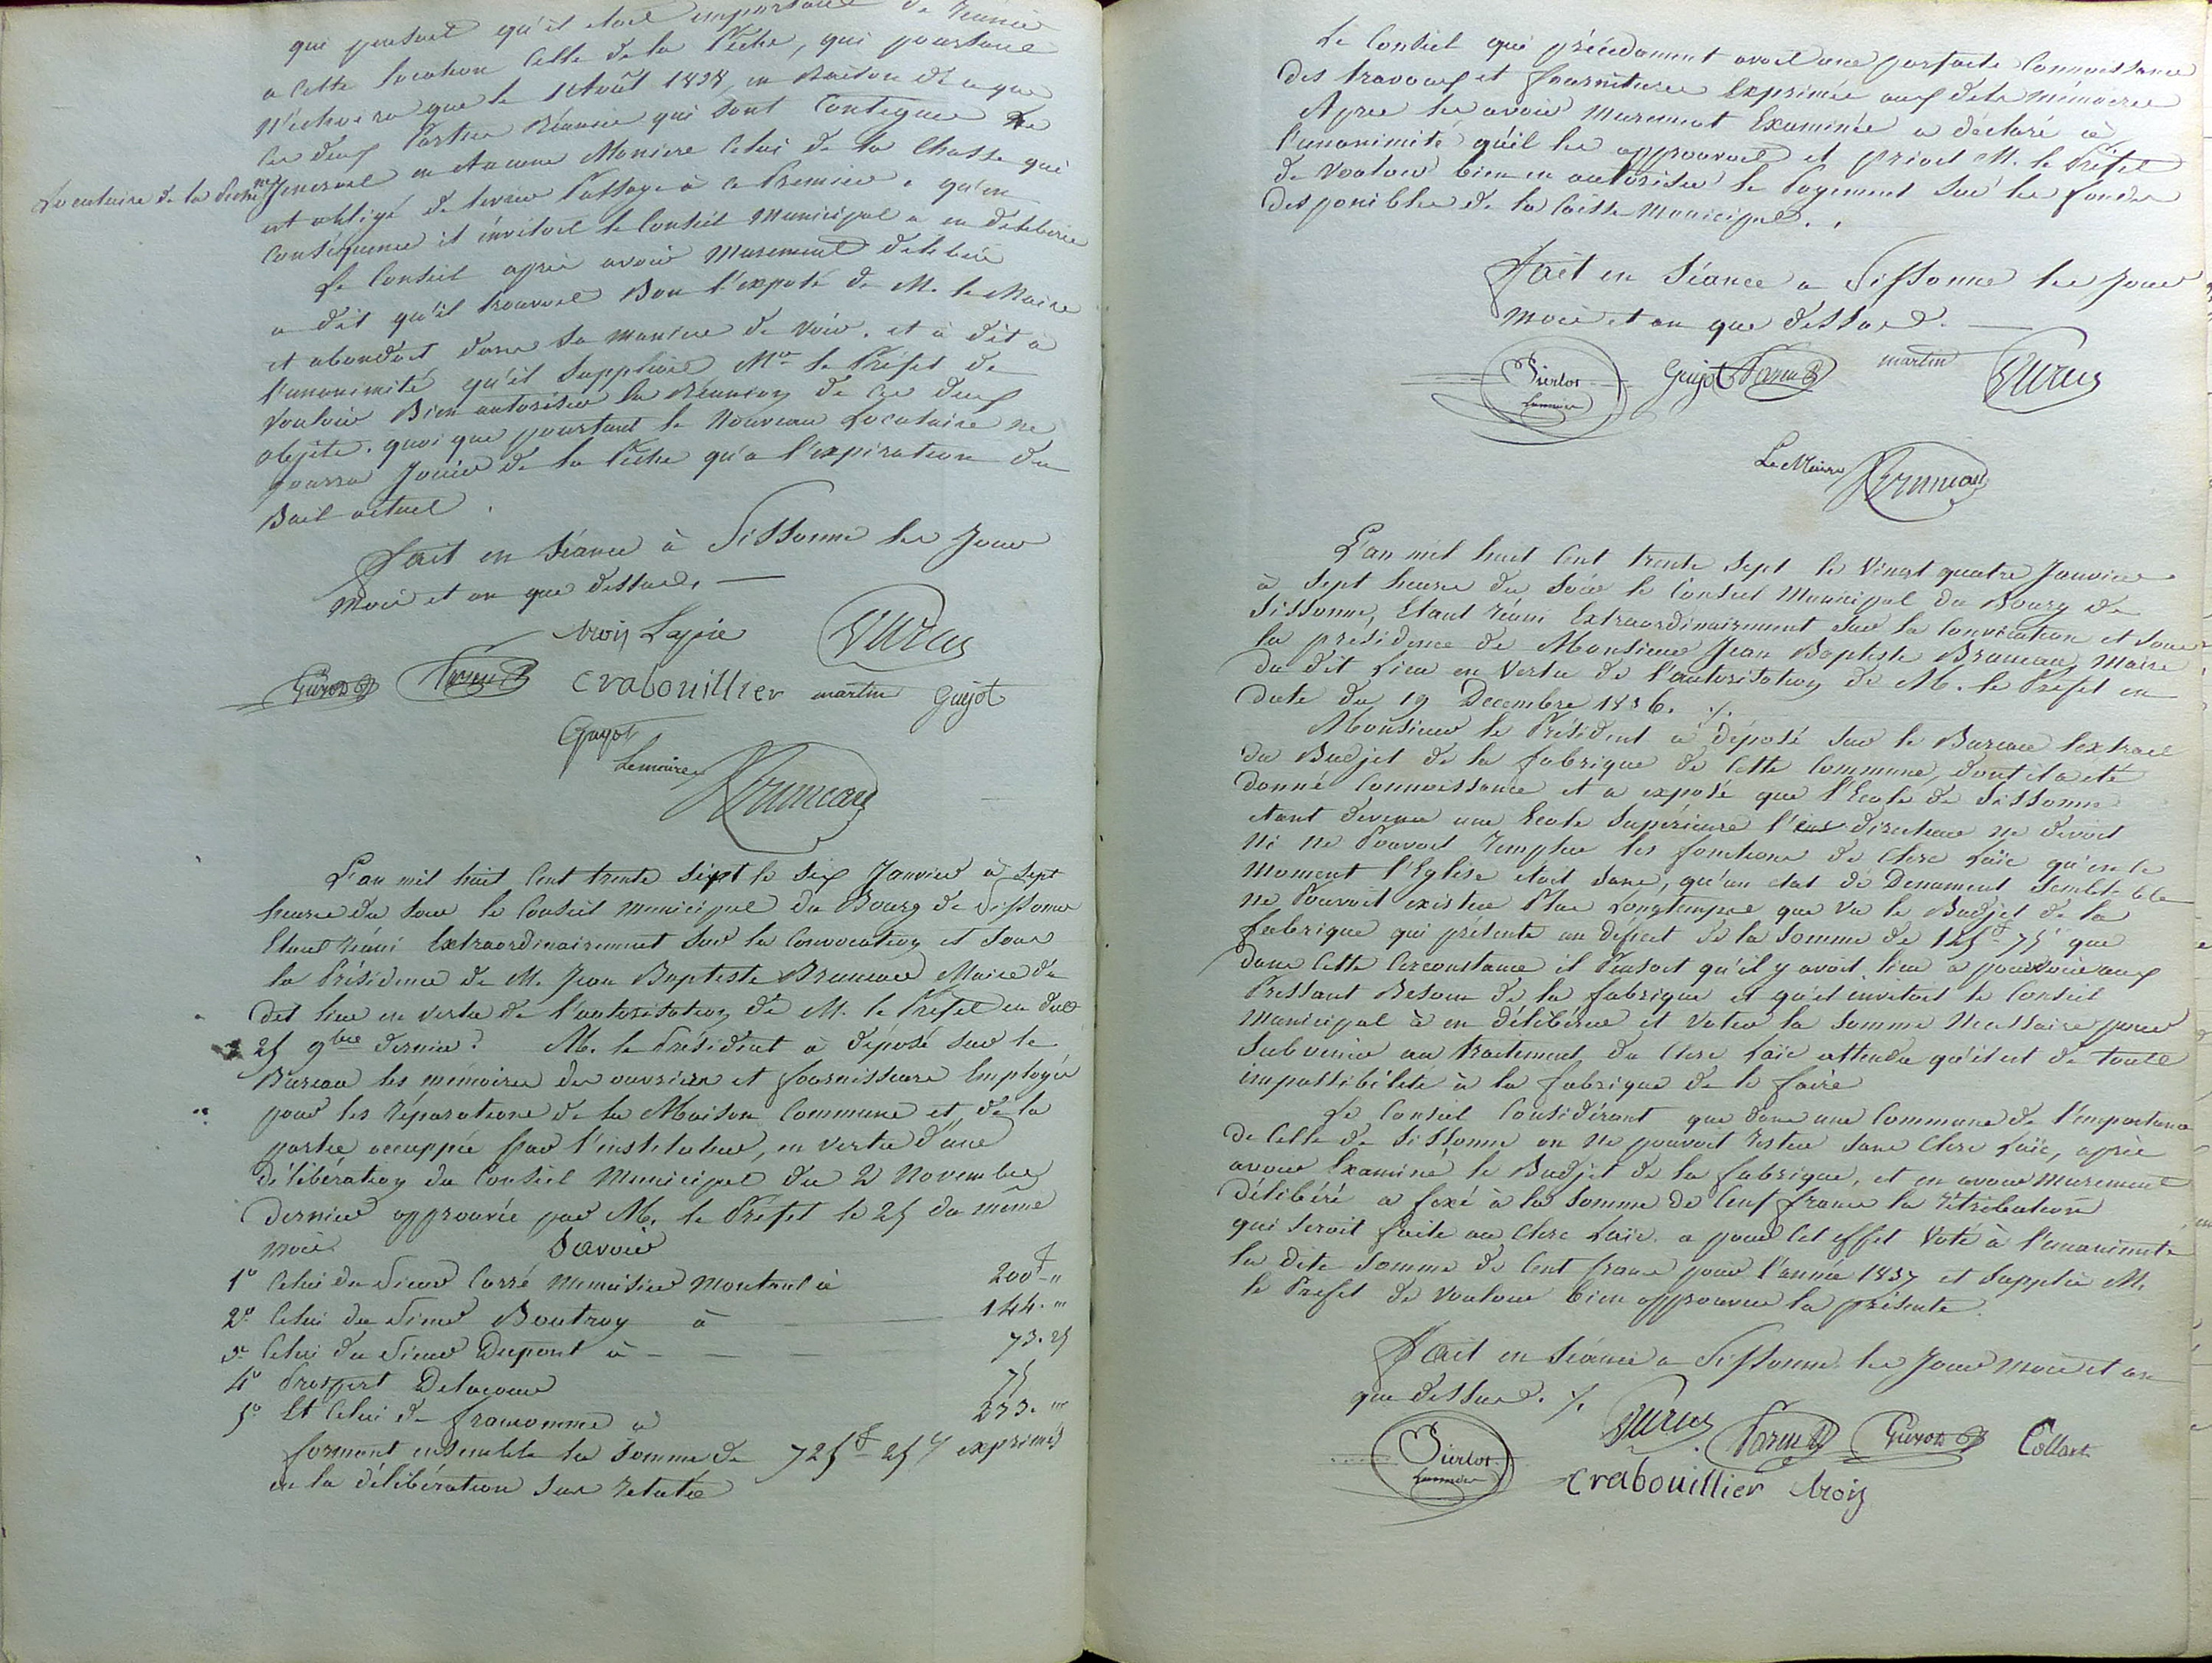 qui pensait qu'il etait important de Réunir
a Cette location Celle de la Pêche, qui pourtant
n'échoira que le 1 Août 1838, en Raison de ce que
les deux Parties Réunies qui Sont Contigues Ne
Locataire de la Peche generoit en Aucune Maniere Celui de la Chasse qui
est obligé de livrer Passage à ce Premier. qu'en
Conséquence il invitoit le Conseil Municipal a en délibérer
Le Conseil après avoir Murement délibéré
a dit qu'il trouvoit Bon l'exposé de M. le Maire
et abondoit dans Sa maniere de voir. et à dit à
l'unanimité qu'il Supplioit Mr le Préfet de
Vouloir Bien autoriser la Réunion de ces deux
objets. quoi que pourtant le Nouveau Locataire ne
pourra Jouir de la Pêche qu'a l'expiration du
Bail actuel.
Fait en Séance à Sissonne les Jour
Mois et an que dessus. —
Lapie
Crabouillier martin Guyot
Guyot
Lemaire Bruneau
L'an mil huit Cent trente Sept le Six Janvier à Sept
heures du Soir le Conseil municipal du Bourg de Sissonne
Etant réuni Extraordinairement Sur la Convocation et Sous
la Présidence de M. Jean Baptiste Bruneau Maire du
dit lieu en vertu de l'autorisation de M. le Préfet en date
25 9bre dernier. M. le Président à déposé sur le
Bureau les mémoires des ouvriers et fournisseurs Employés
pour les réparations de la Maison Commune et de la
partie occuppée par l'instituteur, en vertu d'une
délibération du Conseil Municipal du 2 Novembre
dernier approuvée par M. le Préfet le 25 du même
mois. Savoir
1° Celui du Sieur Carré Menuisier Montant à 200f "
2° Celui du Sieur Boutroy à — 144. "
3° Celui du Sieur Dupont à — 73. 25
4° Prospert Delacour 75
5° Et Celui de francomme à 233. "
formant ensemble la Somme de 725f 25c exprimés
en la délibération Sus relatée
Le Conseil qui précédament avoit une parfaite Connoissance
des travaux et fournitures Exprimés aux dits mémoires
Apres les avoir Murement Examinés a déclaré à
l'unanimité qu'il les approuvoit et prioit M. le Préfet
de Vouloir bien en autoriser le Payement Sur les fonds
disponibles de la Caisse Municipal..
Fait en Séance a Sissonne les Jour
Mois et an que dessus. —
Pierlot Guyot martin
Le Maire Bruneau
L'an mil huit Cent trente Sept le Vingt quatre Janvier
à Sept heures du Soir le Conseil Municipal du Bourg de
Sissonne, Etant réuni Extraordinairement Sur la Convocation et Sous
la présidence de Monsieur Jean Baptiste Bruneau Maire
du dit Lieu en Vertu de l'autorisation de M. le Préfet en
date du 19 Decembre 1836. ./.
Monsieur le Président à déposé Sur le Bureau l'extrait
du Budjet de la fabrique de Cette Commune, dont il a eté
donné Connoissance et a exposé que l'Ecole de Sissonne
etant devenu une Ecole Supérieure l' directeur ne devoit
Ni ne Pouvoit remplir les fonctions de Clerc Laïc qu'en ce
Moment l'Eglise étoit Sans, qu'un état de Denument Semblable
ne Pouvoit exister Plus Longtemps que Vu le Budjet de la
fabrique qui présente un déficit de la Somme de 125f 75c que
dans Cette Circonstance il Pensoit qu'il y avoit lieu a pourvoir aux
Pressant Besoin de la fabrique et qu'il invitoit le Conseil
Municipal à en délibérer et Voter la Somme Necessaire pour
Subvenir au traitement du Clerc Laïc attendu qu'il est de toute
impossibilité à la fabrique de le faire
Le Conseil Considérant que dans une Commune de l'importance
de Celle de Sissonne on Ne pouvoit rester Sans Clerc Laïc, après
avoir Examiné le Budjet de la fabrique, et en avoir murement
délibéré a fixé à la Somme de Cent francs la rétribution
qui Seroit faite au Clerc Laïc. a pour Cet effet Voté à l'unanimité
la dite Somme de Cent francs pour l'année 1837 et Supplie M.
le Prefet de Vouloir bien approuver la présente.
Fait en Séance a Sissonne les Jour mois et an
que dessus. ./.
Pierlot Collart
Crabouillier